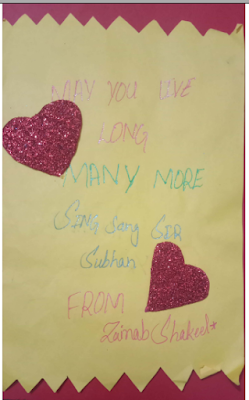 MAY YOU LIVE
LONG
MANY MORE
SING Song SIR
Subhan
FROM
Zainab Shakeel